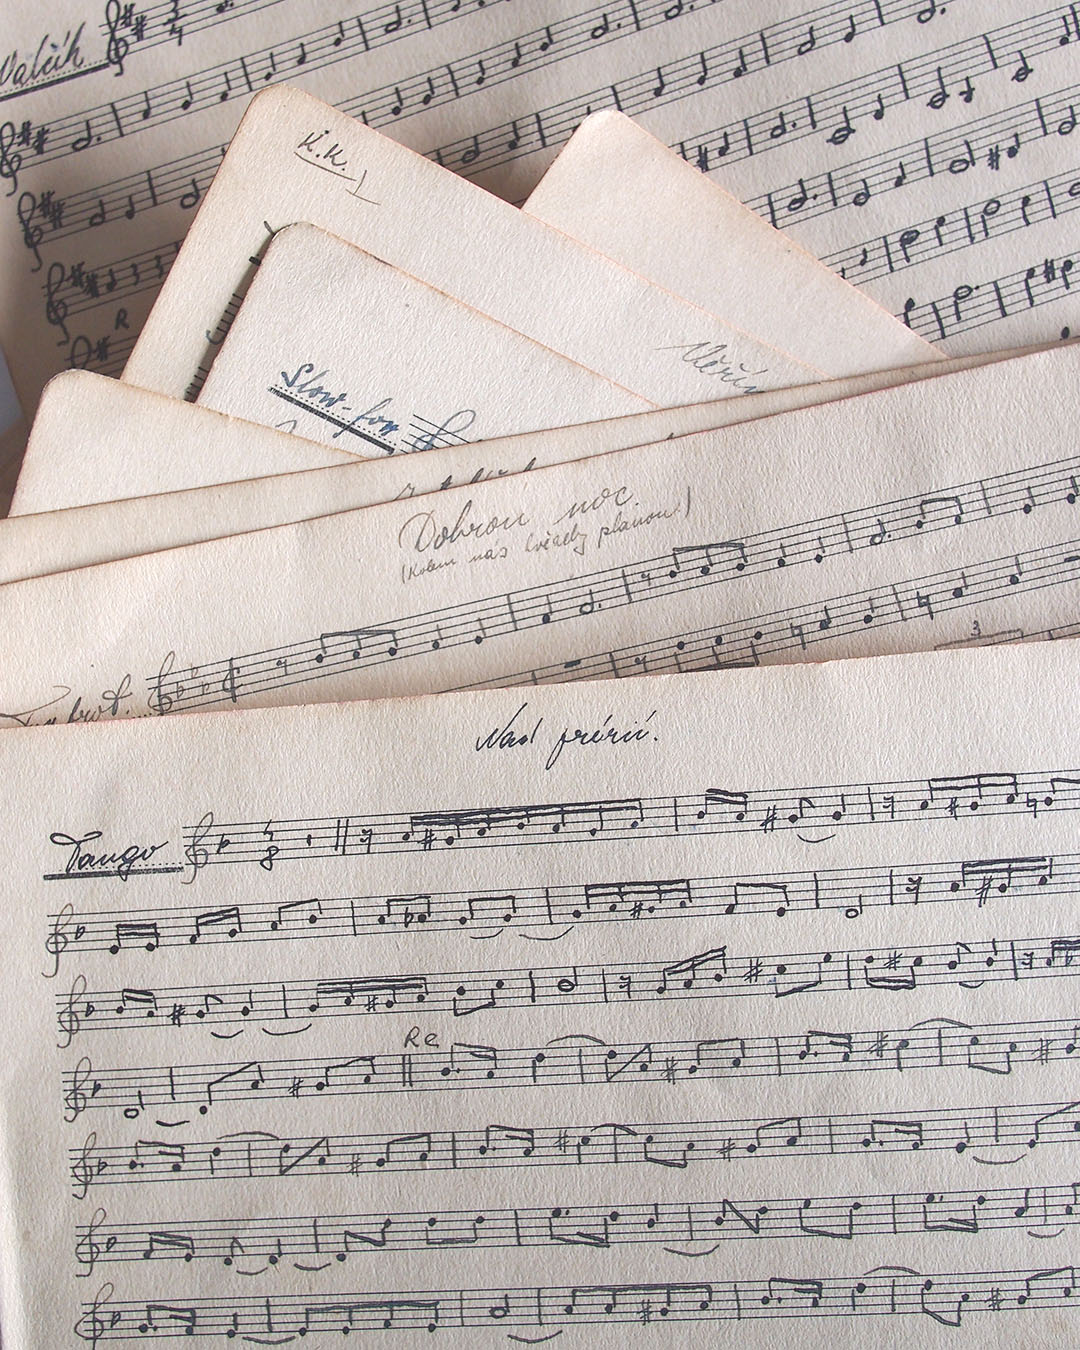 Valčík
K.K.
R
Slow-fox
Věřím
Dobrou noc
(Kolem nás hvězdy planou)
Foxtrot.
3
Nad prérií.
Tango
Re